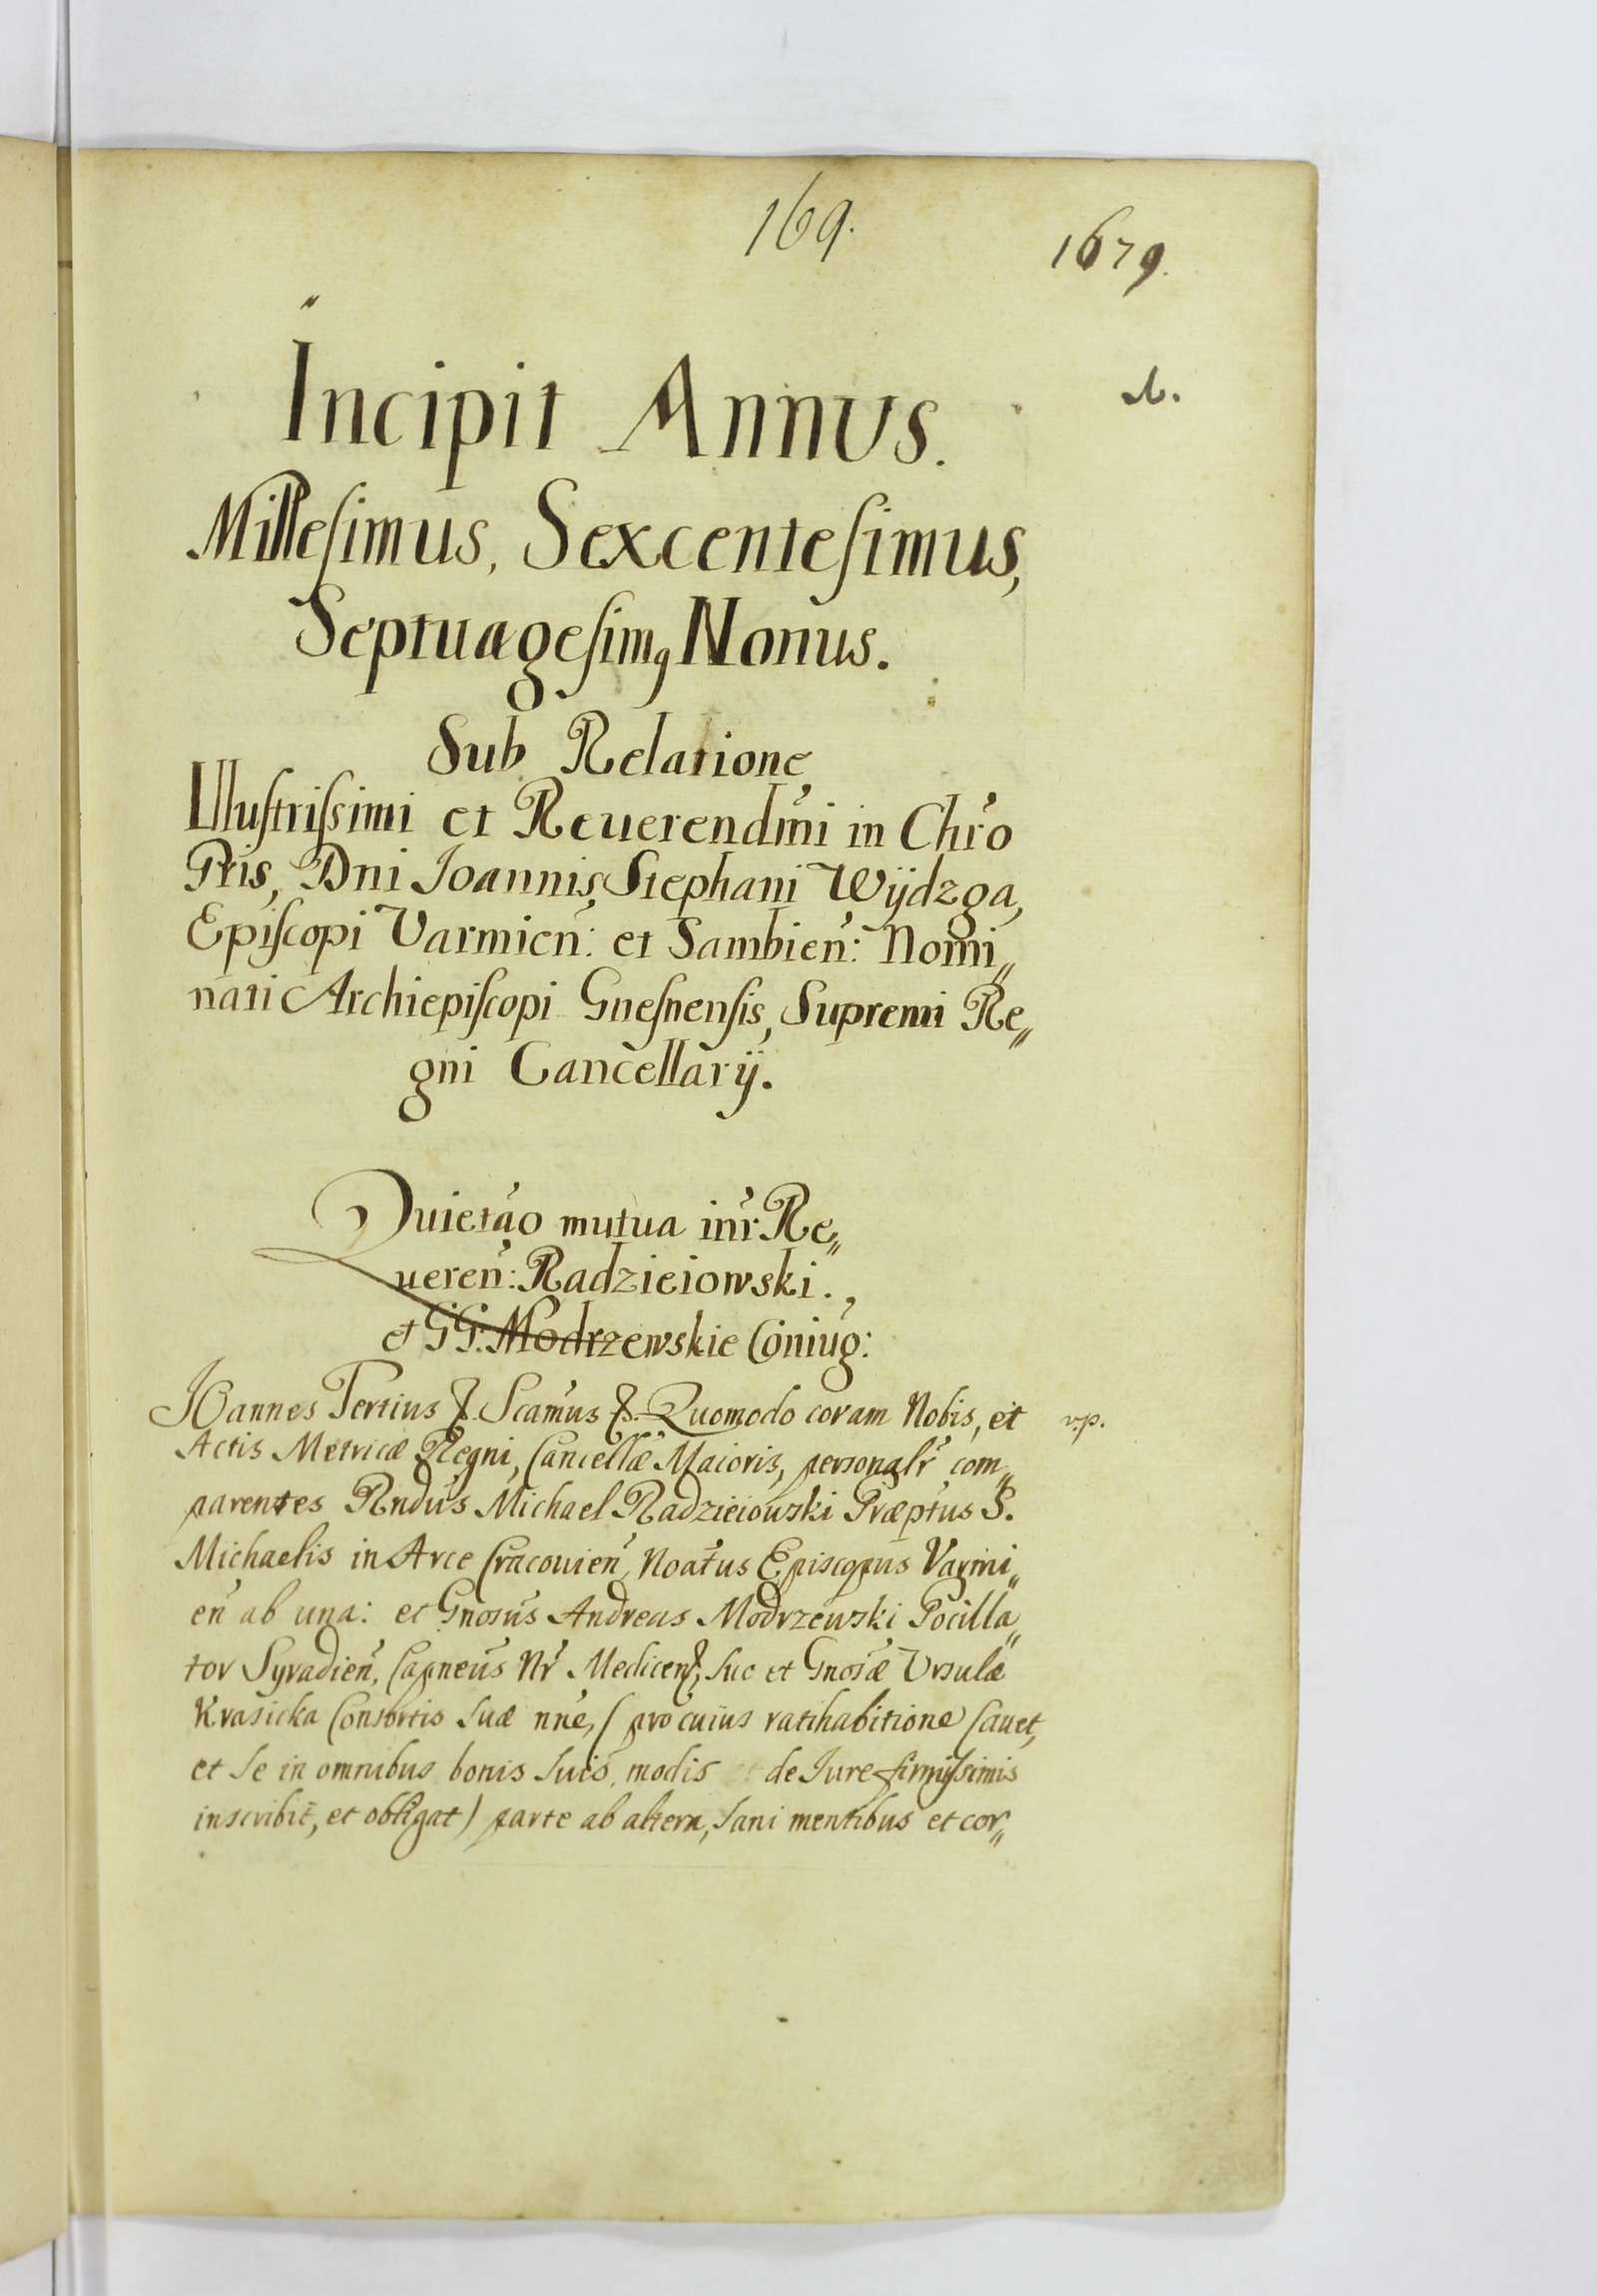 169.
1679.
Incipit Annus.
Millesimus, Sexcentesimus,
Septuagesimꝰ Nonus.
Sub Relatione
Illustrissimi et Reuerendm̃i in Chr̃o
Pris, Dni Ioannis Stephani Wÿdzga,
Episcopi Varmien̄: et Sambien̄: Nomi„
nati Archiepiscopi Gnesnensis, Supremi Re„
gni Cancellarÿ.
Quietão mutua inr̃ Re„
ueren̄: Radzieiowski.,
et GG: Modrzewskie Coniug:
Ioannes Tertius &. Scãmus &. Quomodo coram Nobis, et
v.p.
Actis Metricæ Regni, Cancellæ Maioris, personalr̃ com„
parentes Rndũs Michael Radzieiowski Præptus S.
Michaelis in Arce Cracouien̄, Noãtus Episcopus Varmi„
en̄ ab una: et Gnosũs Andreas Modrzewski Pocilla„
tor Syradien̄, Capneũs Nr̃ Medicen&, suo et Gnosæ̃ Vrsulæ
Krasicka Consortis suæ nñe, (pro cuius ratihabitione Cauet,
et se in omnibus bonis suis, modis de Iure firmissimis
inscribit, et obligat) parte ab altera, sani mentibus et cor„